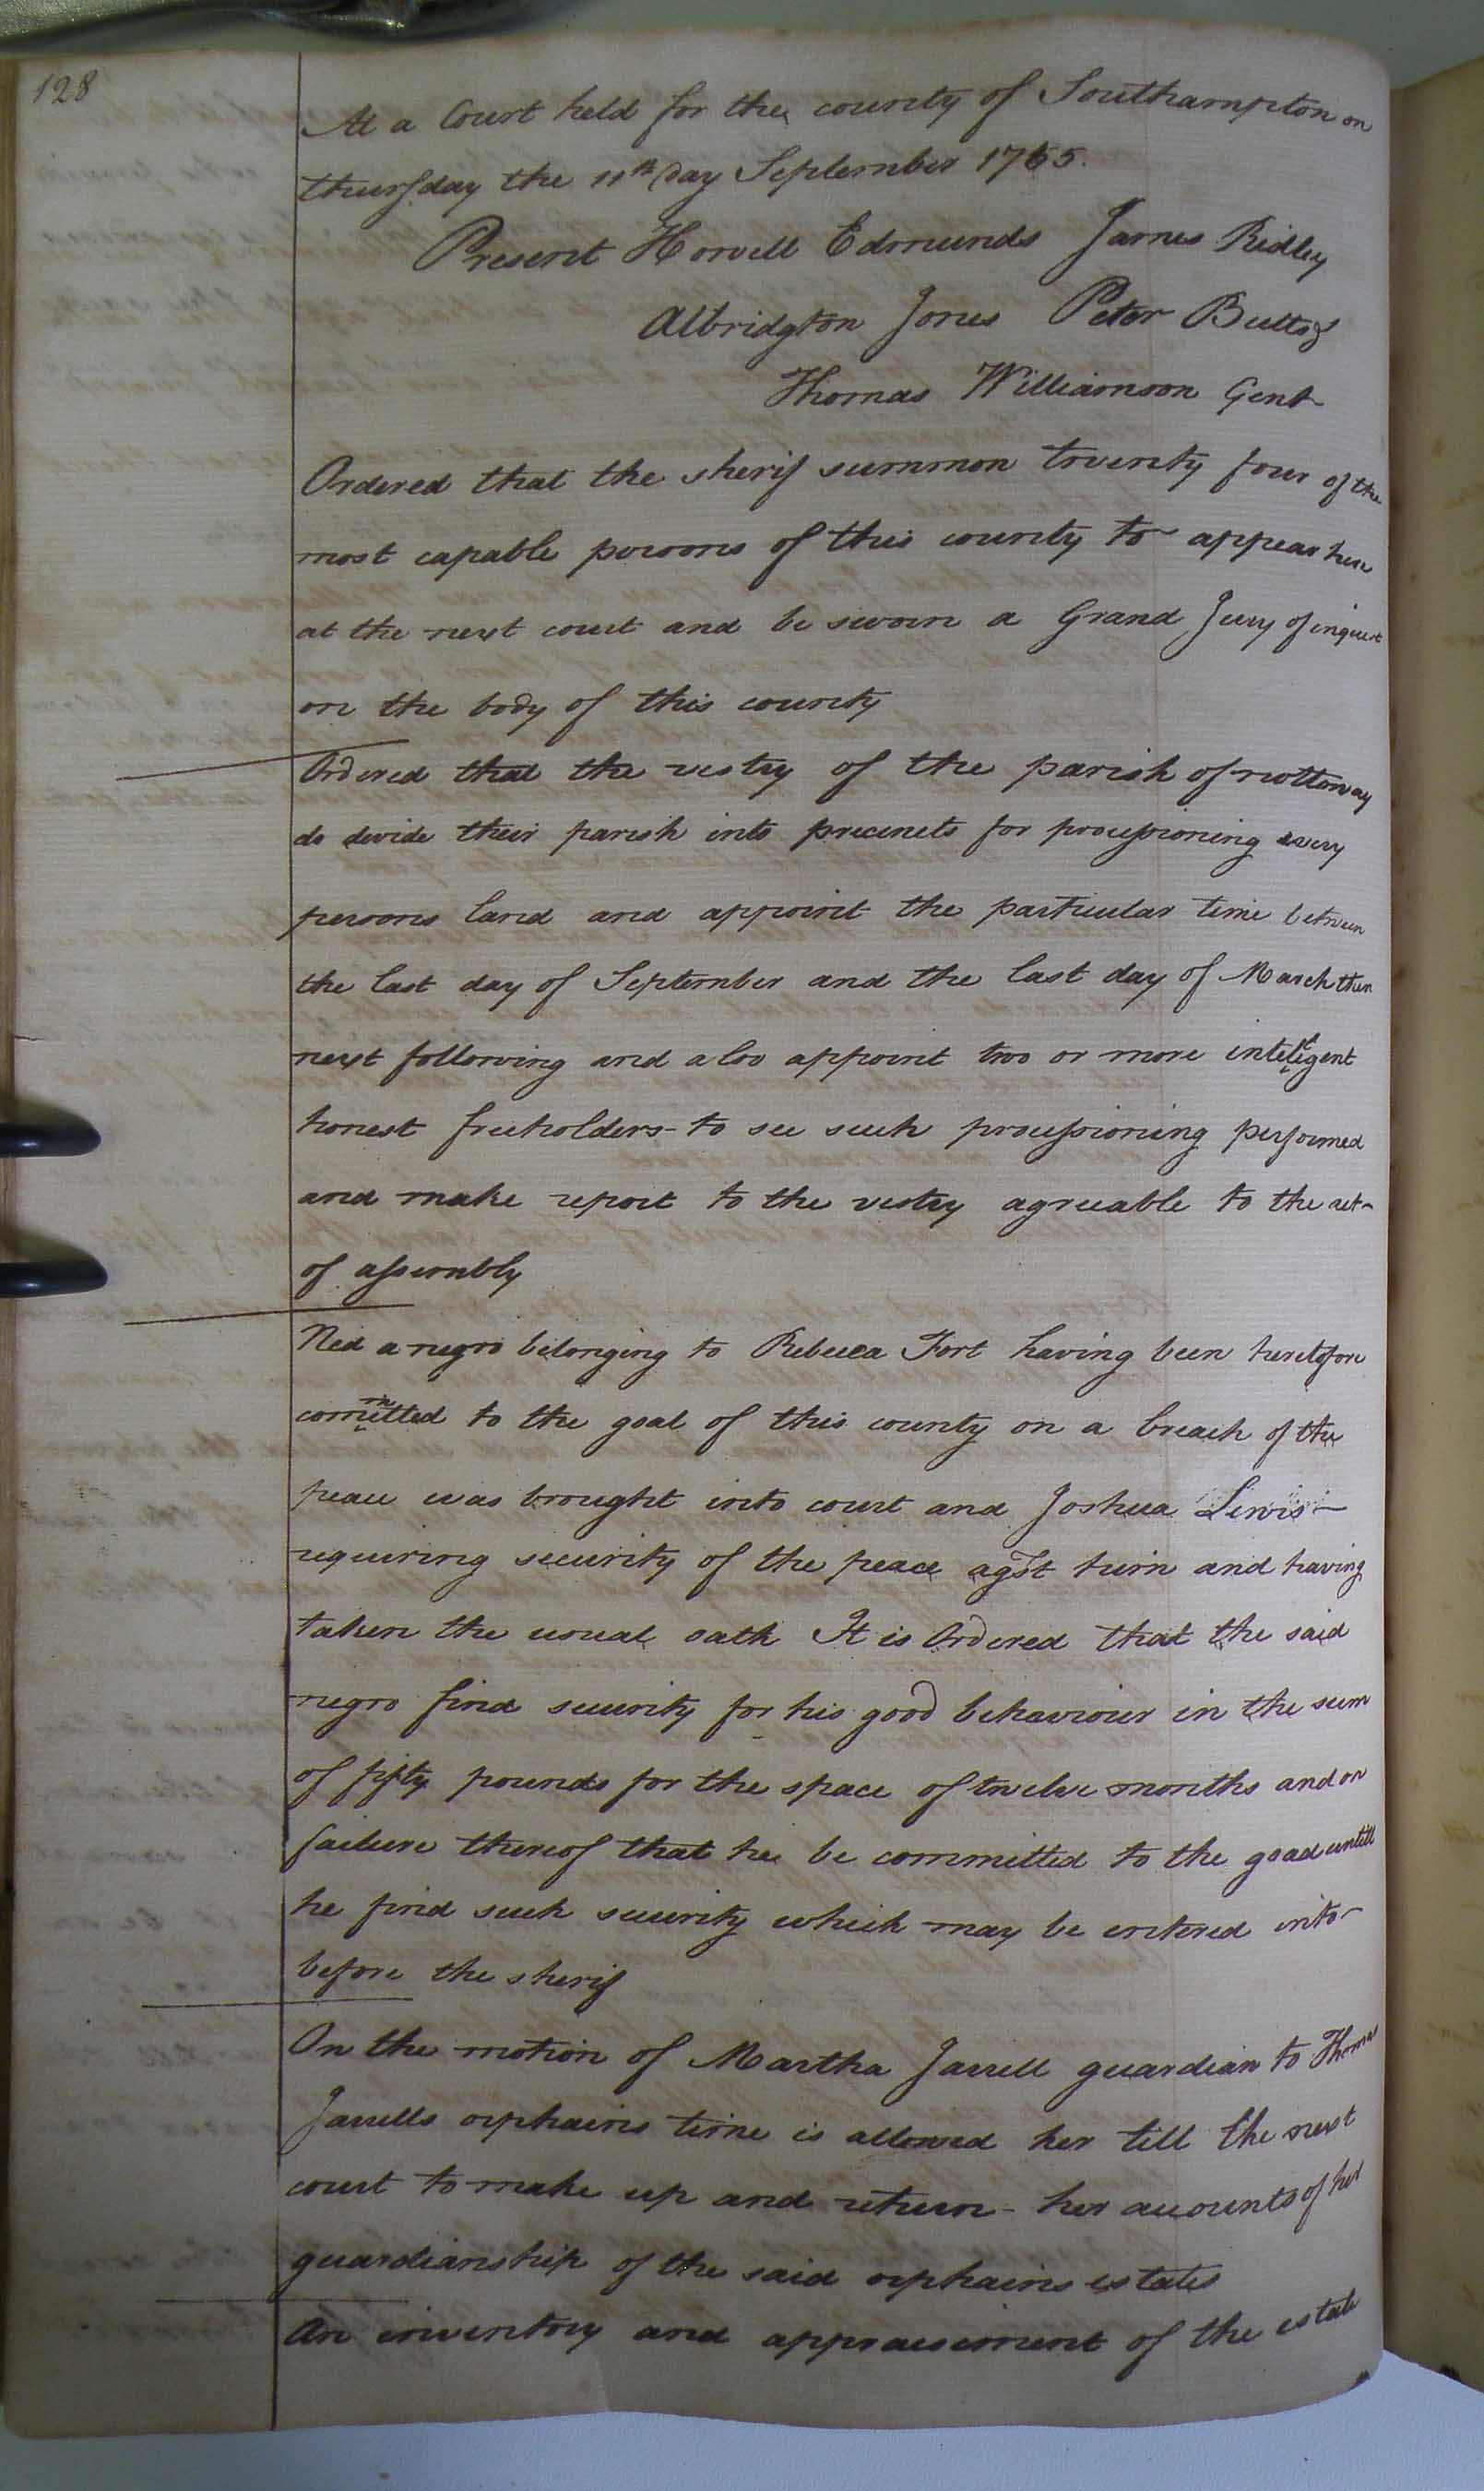 128
At a Court held for the county of Southampton on
thursday the 11th day September 1755.
Present Howell Edmunds James Ridley
Albridgton Jones Peter Butts &
Thomas Williamson Gent
Ordered that the sherif summon twenty four of the
most capable persons of this county to appear here
at the next court and be sworn a Grand Jury of inquest
on the body of this county
Ordered that the vestry of the parish of nottoway
do devide their parish into precincts for processioning every
persons land and appoint the particular time between
the last day of September and the last day of March then
next following and also appoint two or more inteligent
honest freeholders to see such processioning performed
and make report to the vestry agreeable to the act
of assembly
Ned a negro belonging to Rebecca Fort having been heretofore
committed to the goal of this county on a breach of the
peace was brought into court and Joshua Lewis
requiring security of the peace agst him and having
taken the usual oath It is Ordered that the said
negro find security for his good behaviour in the sum
of fifty pounds for the space of twelve months and on
failure thereof that he be committed to the goad untill
he find such security which may be entered into
before the sherif
On the motion of Martha Jarrell guardian to Thomas
Jarrells orphains time is allowed her till the next
court to make up and return - her accounts of her
guardianship of the said orphains estates
An inventory and appraisement of the estate